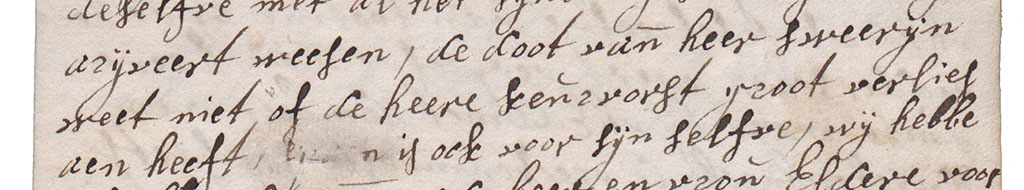 deselfve met al het sijn
arijveert weesen, de doot van heer sweerijn
weet niet of de heere keurvorst groot verlies
aen heeft, is ock voor sijn selfve, wij hebbe
heer en vrou Eldere voor